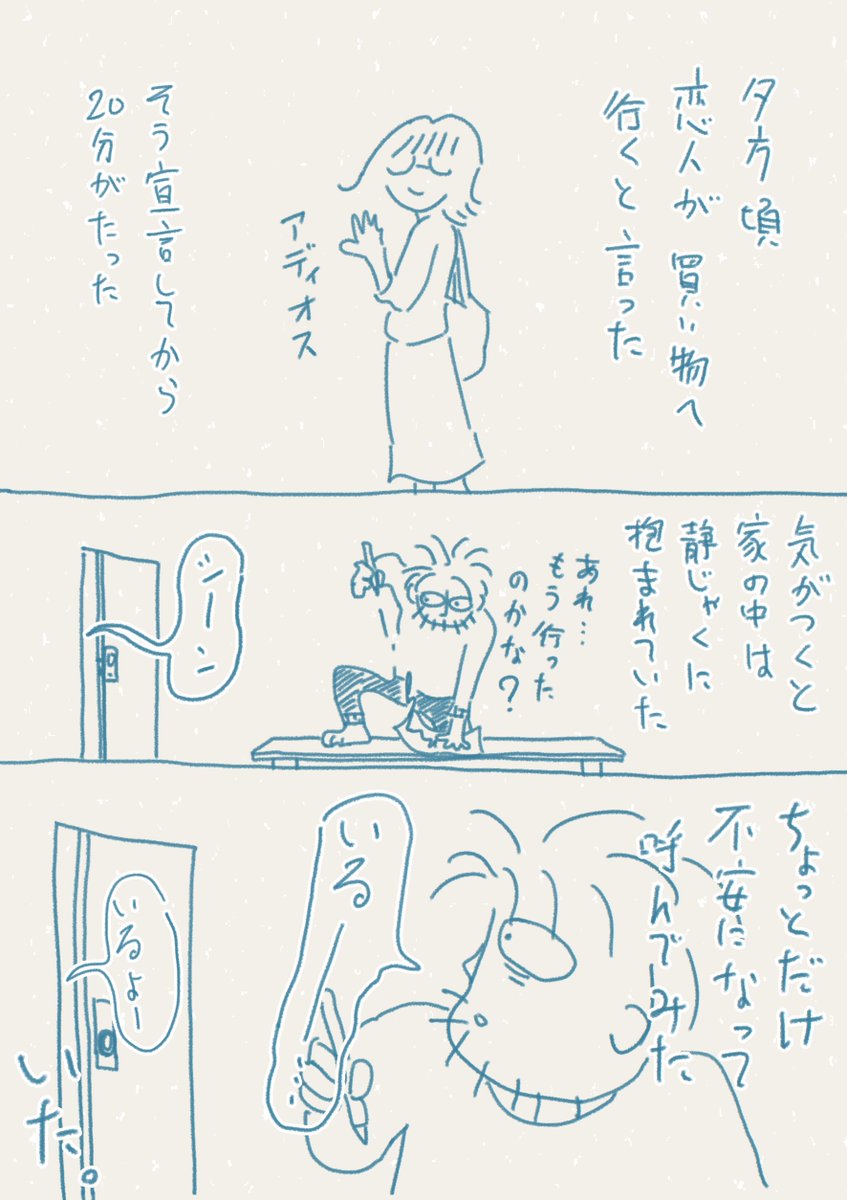 夕方頃
恋人が買い物へ
行くと言った
アディオス
そう宣言してから
20分がたった
気がつくと
家の中は
静じゃくに
抱まれていた
あれ…
もう行った
のかな?
シーン
ちょっとだけ
不安になって
呼んでみた
いるー…?
いるよー
いた。